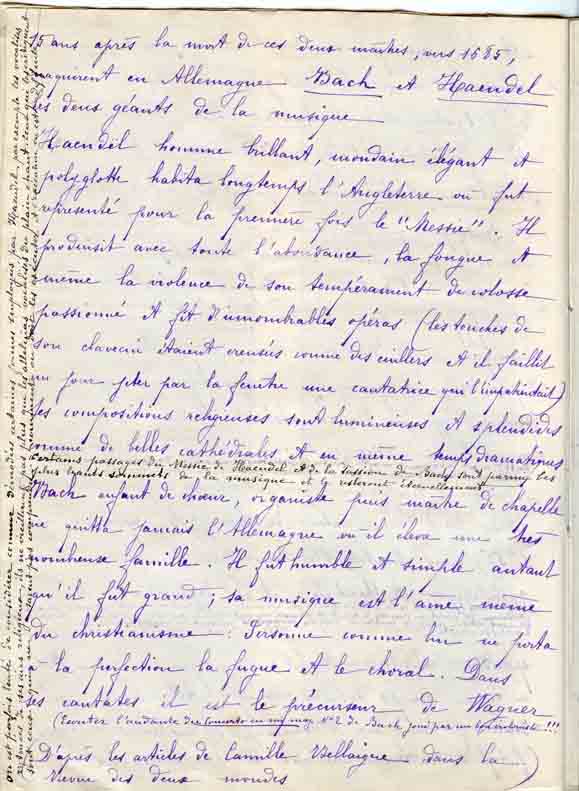 15 ans après la mort de ces deux maîtres, vers 1685,
naquirent en Allemagne Bach et Haendel
les deux géants de la musique
Haendel homme brillant, mondain élégant et
polyglotte habita longtemps l'Angleterre où fut
représenté pour la première fois le "Messie". Il
produisit avec toute l'abondance, la fougue et
même la violence de son tempérament de colosse
passionné et fit d'innombrables opéras (les touches de
son clavecin étaient creusées comme des cuillers et il faillit
un jour jeter par la fenêtre une cantatrice qui l'impatientait)
Ses compositions religieuses sont lumineuses et splendides
comme de belles cathédrales et en même temps dramatiques
Certains passages du Messie de Haendel et de la Passion de Bach sont parmi les
plus hauts sommets de la musique et y resteront éternellement
Bach enfant de chœur, organiste puis maître de chapelle
ne quitta jamais l'Allemagne où il éleva une très
nombreuse famille. Il fut humble et simple autant
qu'il fut grand ; sa musique est l'âme même
du christianisme : Personne comme lui ne porta
à la perfection la fugue et le choral. Dans
ses cantates il est le précurseur de Wagner
(Ecouter l'andante du Concerto en mi maj N°2 de Bach joué par un !!!
D'après les articles de Camille Bellaigue dans la
Revue des deux mondes)
On est parfois tenté de considérer comme démodées certaines formes employées par Haendel, par exemple les vocalises